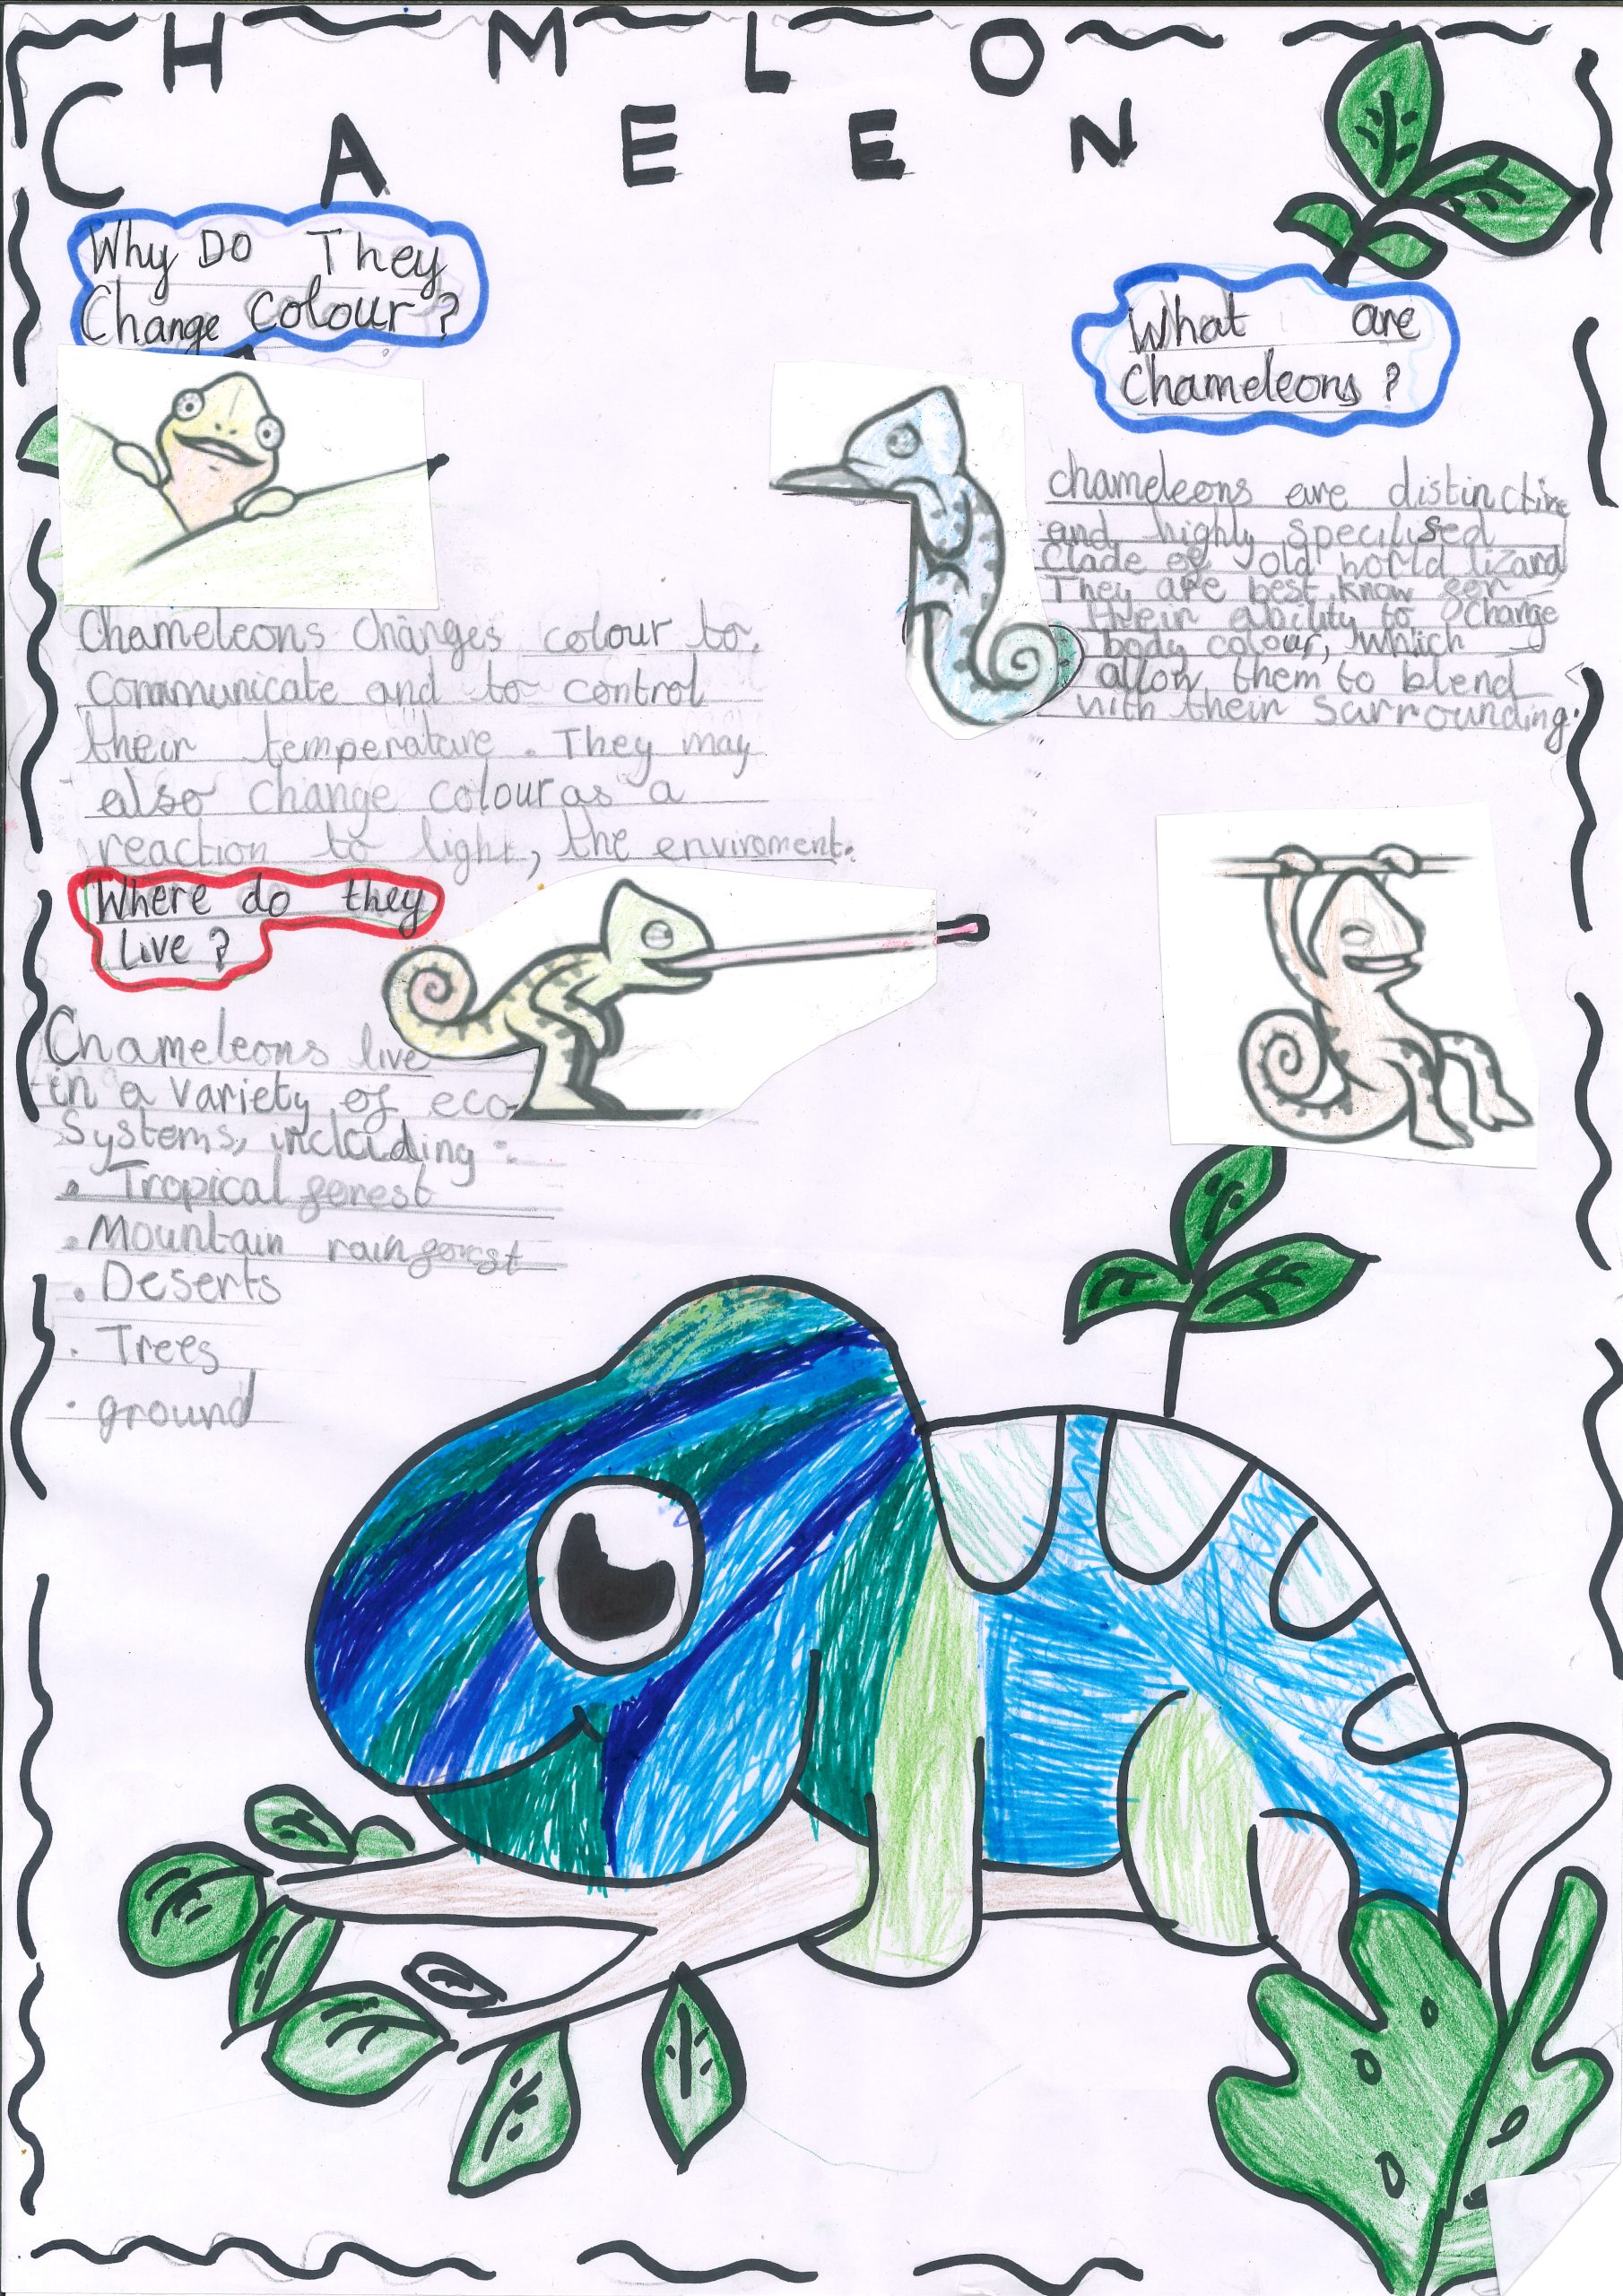 CHAMELEON
Why Do They
Change Colour?
Chameleons changes colour to
communicate and to control
their temperature. They may
also change colour as a
reaction to light, the enviroment.
Where do they
Live?
Chameleons live
in a variety of eco-
systems, including:
• Tropical forest
• Mountain rainforest
• Deserts
• Trees
• ground
What are
Chameleons?
chameleons are distinctive
and highly specilised
Clade of old world lizard
They are best know for
their ability to change
body colour, which
allow them to blend
with their surrounding.